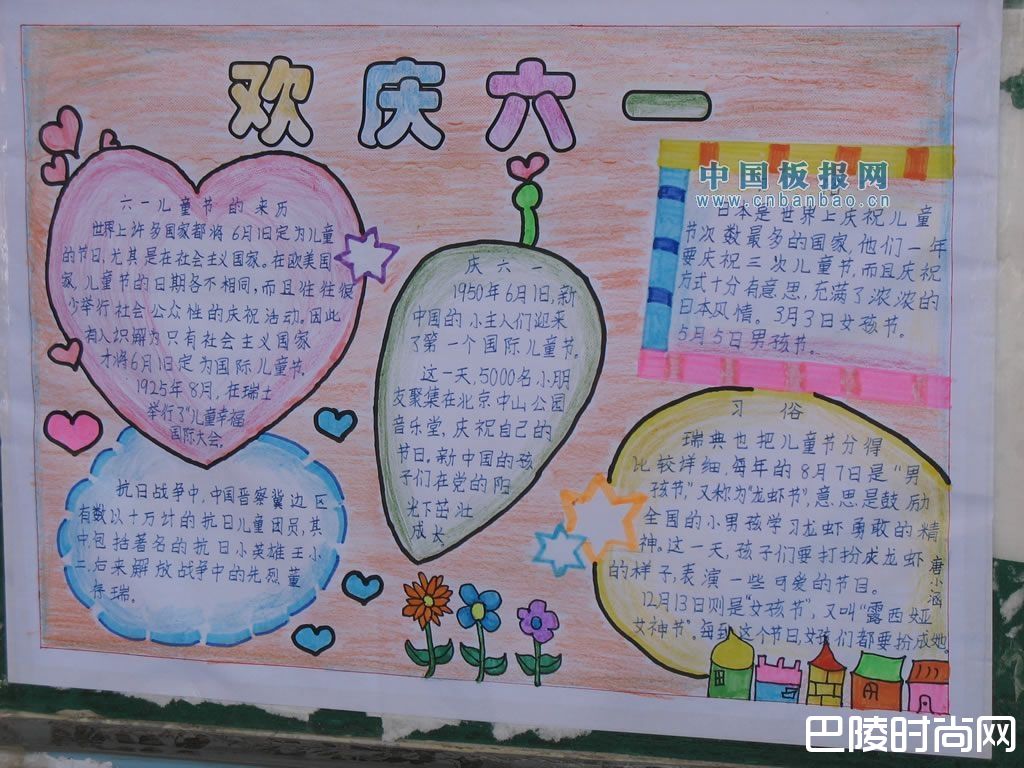 欢庆六一
六一儿童节的来历
世界上许多国家都将6月1日定为儿童
的节日,尤其是在社会主义国家。在欧美国
家,儿童节的日期各不相同,而且往往很
少举行社会公众性的庆祝活动,因此
有人误解为只有社会主义国家
才将6月1日定为国际儿童节.
1925年8月,在瑞士
举行了"儿童幸福
国际大会。
抗日战争中,中国晋察冀边区
有数以十万计的抗日儿童团员,其
中,包括著名的抗日小英雄王小
二,后来解放战争中的先烈董
存瑞。
庆六一
1950年6月1日,新
中国的小主人们迎来
了第一个国际儿童节。
这一天,5000名小朋
友聚集在北京中山公园
音乐堂,庆祝自己的
节日.新中国的孩
子们在党的阳
光下茁壮
成长
中国板报网
www.cnbanbao.cn
日本是世界上庆祝儿童
节次数最多的国家,他们一年
要庆祝三次儿童节,而且庆祝
方式十分有意思,充满了浓浓的
日本风情。3月3日女孩节。
5月5日男孩节。
习俗
瑞典也把儿童节分得
比较详细,每年的8月7日是"男
孩节",又称为"龙虾节",意思是鼓励
全国的小男孩学习龙虾勇敢的精
神。这一天,孩子们要打扮成龙虾
的样子,表演一些可爱的节日。
12月13日则是"女孩节",又叫"露西娅
女神节"。每到这个节日,女孩们都要扮成她。
唐小涵
巴陵时尚网